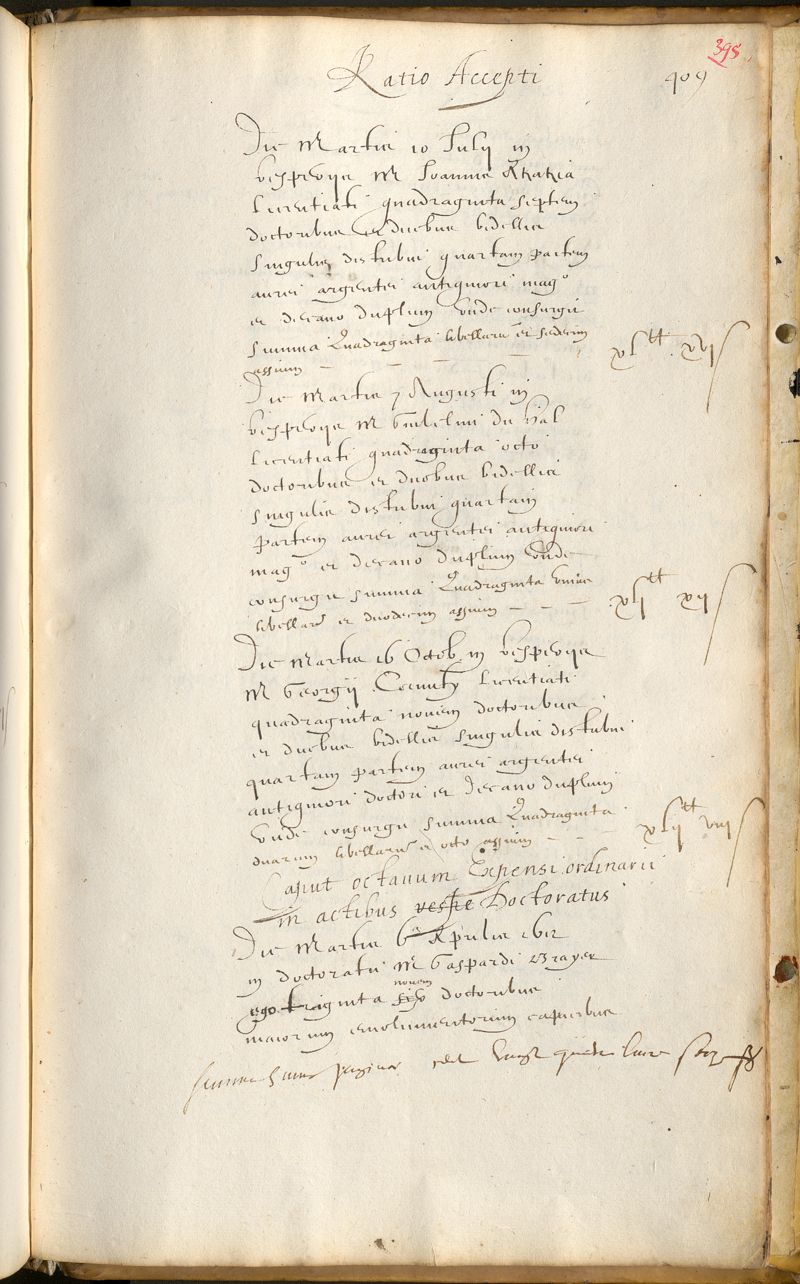 398
Ratio Accepti 409
Die Martis 10 Julij in
vesperijs M Joannis Akakia
licentiati quadraginta septem
doctoribus et duobus bidellis
singulis distribui quartam partem
aurei argentei antiquiori mag°
et decano duplum unde consurgit
summa Quadraginta libellarū et sedecim
assium — — — — xl tt. xvj s
Die Martis 7 Augusti in
vesperijs M Guilelmi du Val
licentiati quadraginta octo
doctoribus et duobus bidellis
singulis distribui quartam
partem aurei argentei antiquiori
mag° et decano duplum unde
consurgit summa Quadraginta unius
libellarū et duodecim assium — — — xlj tt xij s
Die Martis 16 Octob in vesperijs
M Georgij licentiati
quadraginta novem doctoribus
et duobus bidellis singulis distribui
quartam partem aurei argentei
antiquiori doctori et Decano duplum
Unde consurgit summa Quadraginta
duarum libellarū et octo assium — — xlij tt viij s
Caput octauum Expensi ordinarii
in actibus Doctoratus
Die Martis Aprilis 1612
in doctoratu M Gaspardi Brayer
ego triginta novem doctoribus
maiorum emolumentorum capacibus
summa huius paginae vingt quatre livres